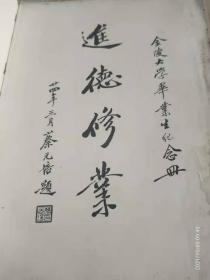 金陵大學畢業生紀念冊
進德修業
廿四年三月 蔡元培題